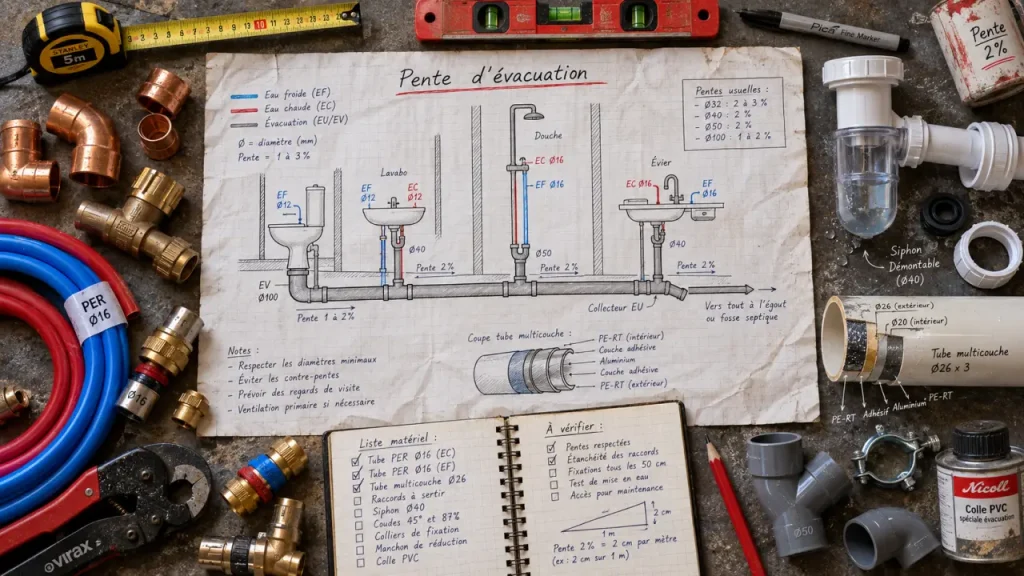 STANLEY
5m
10
Pica Fine Marker
Pente
2%
Pente d'évacuation
Eau froide (EF)
Eau chaude (EC)
Évacuation (EU/EV)
Ø = diamètre (mm)
Pente = 1 à 3%
Pentes usuelles :
- Ø32 : 2 à 3 %
- Ø40 : 2 %
- Ø50 : 2 %
- Ø100 : 1 à 2 %
Lavabo
Douche
Évier
EF
EF
Ø12
EC
Ø12
EC Ø16
EF Ø16
EC Ø16
EF
Ø16
Ø12
Ø40
Ø50
Ø40
Pente 2%
Pente 2%
Pente 2%
EV
Ø100
Pente 1 à 2%
Collecteur EU
Vers tout à l'égout
ou fosse septique
Siphon
Démontable
(Ø40)
PER
Ø16
Notes :
- Respecter les diamètres minimaux
- Éviter les contre-pentes
- Prévoir des regards de visite
- Ventilation primaire si nécessaire
Coupe tube multicouche :
PE-RT (intérieur)
Couche adhésive
Aluminium
Couche adhésive
PE-RT (extérieur)
Ø26 (extérieur)
Ø20 (intérieur)
Tube multicouche
Ø26 x 3
PE-RT
Adhésif
Aluminium
PE-RT
Liste matériel :
Tube PER Ø16 (EC)
Tube PER Ø16 (EF)
Tube multicouche Ø26
Raccords à sertir
Siphon Ø40
Coudes 45° et 87%
Colliers de fixation
Manchon de réduction
Colle PVC
À vérifier :
Pentes respectées
Étanchéité des raccords
Fixations tous les 50 cm
Test de mise en eau
Accès pour maintenance
2 cm
1 m
Pente 2% = 2 cm par mètre
(ex : 2 cm sur 1 m)
virax
Ø50
Nicoll
Colle PVC
spéciale évacuation